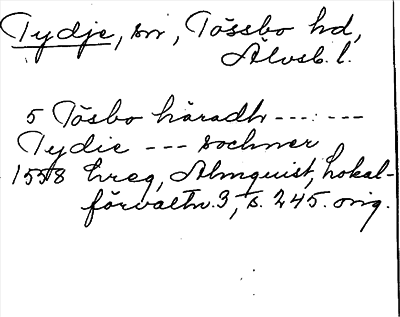 Tydje, sn, Tössbo hd,
Älvsb. l.
5 Tösbo häradh --- : ---
Tydie --- sochner
1558 hreg, Almquist, Lokal-
förvaltn. 3, s. 245. orig.